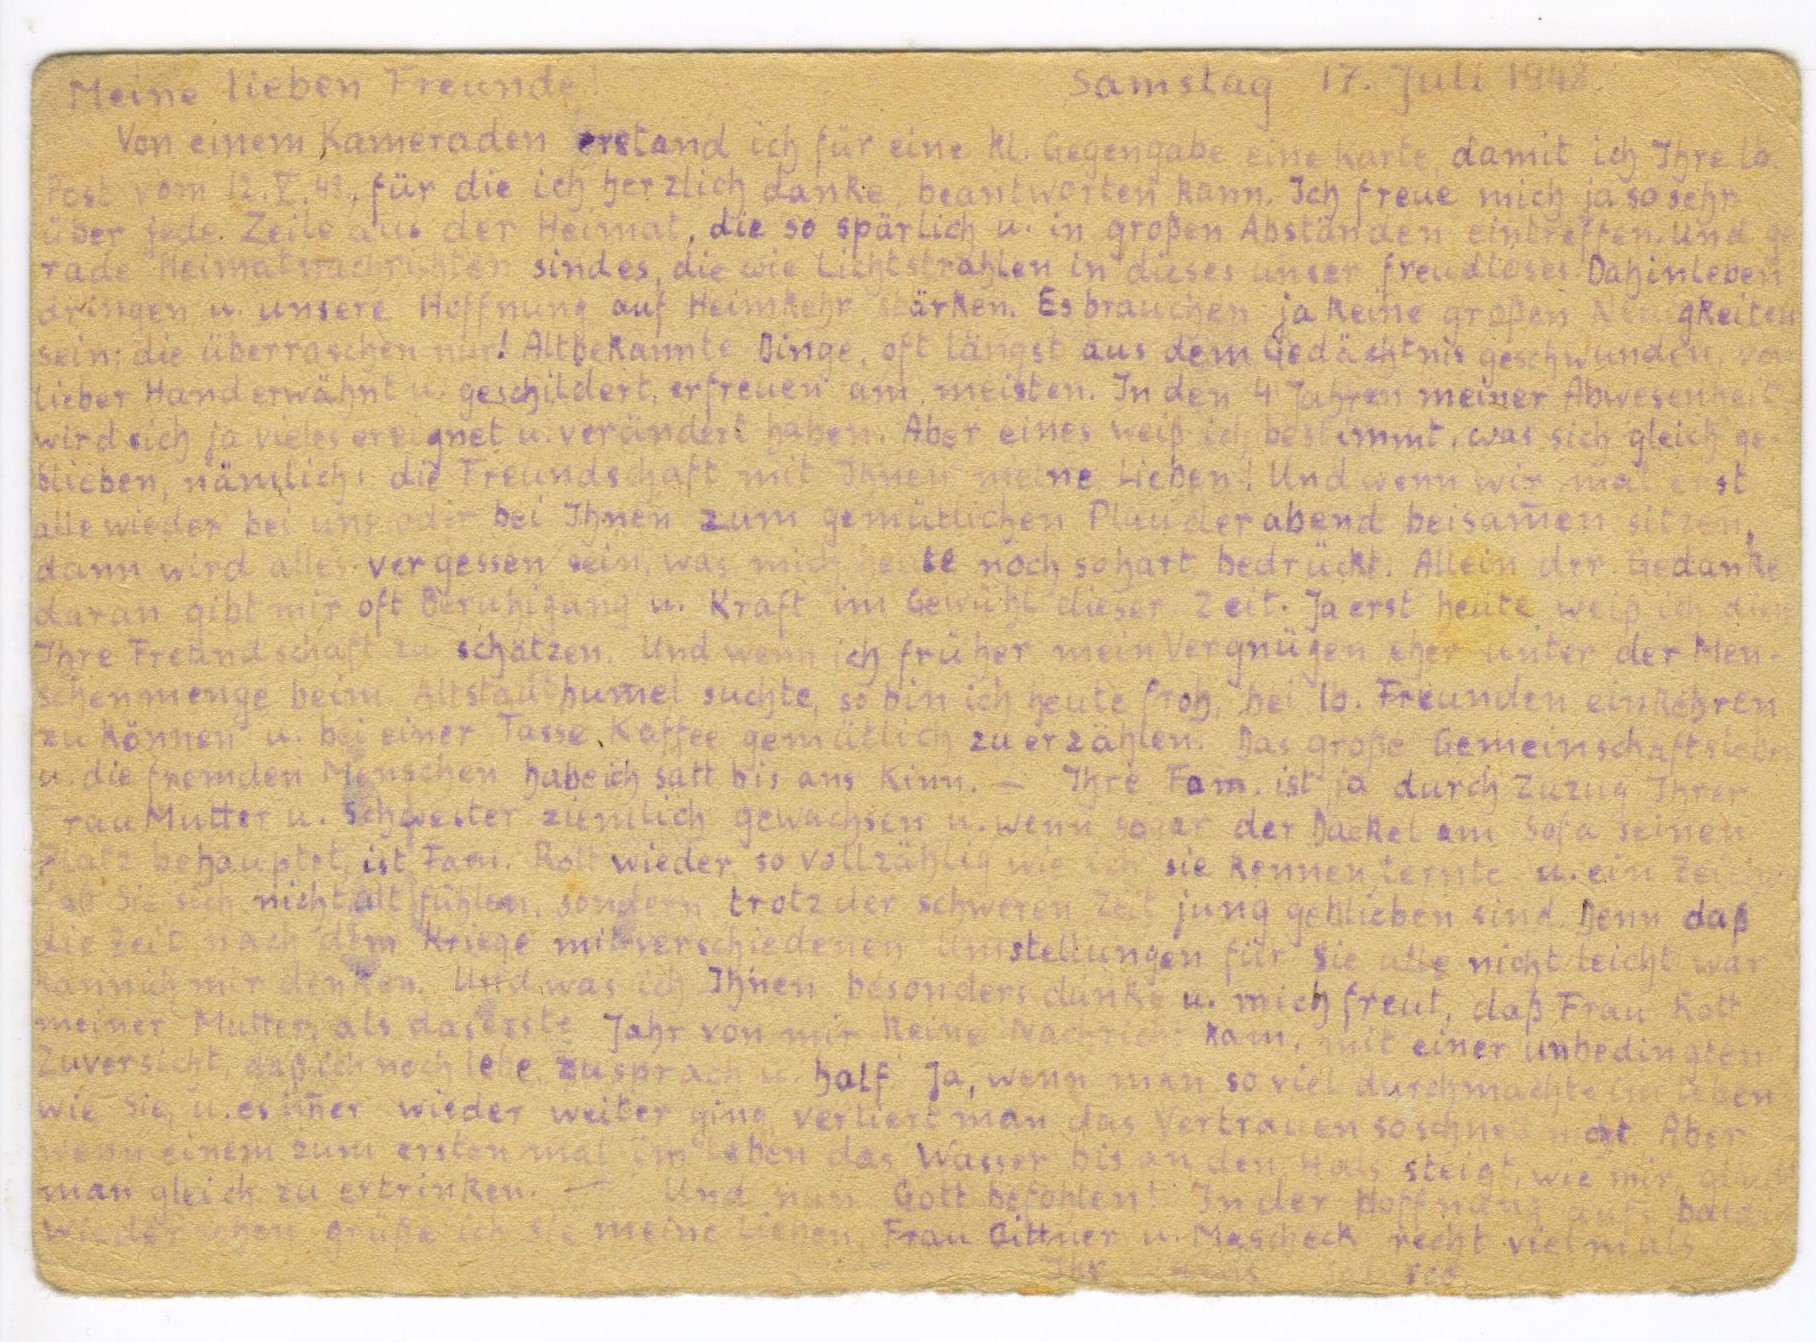 Meine lieben Freunde! Samstag 17. Juli 1948.
Von einem Kameraden erstand ich für eine kl. Gegengabe eine Karte, damit ich Ihre lb.
Post vom 12.V.48., für die ich herzlich danke, beantworten kann. Ich freue mich ja so sehr
über jede Zeile aus der Heimat, die so spärlich u. in großen Abständen eintreffen. Und ge-
rade Heimatnachrichten sind es, die wie Lichtstrahlen in dieses unser freudloses Dahinleben
dringen u. unsere Hoffnung auf Heimkehr stärken. Es brauchen ja keine großen Neuigkeiten
sein; die überraschen nur! Altbekannte Dinge, oft längst aus dem Gedächtnis geschwunden, von
lieber Hand erwähnt u. geschildert, erfreuen am meisten. In den 4 Jahren meiner Abwesenheit
wird sich ja vieles ereignet u. verändert haben. Aber eines weiß ich bestimmt, was sich gleich ge-
blieben, nämlich: die Freundschaft mit Ihnen meine Lieben! Und wenn wir mal erst
alle wieder bei uns oder bei Ihnen zum gemütlichen Plauderabend beisam̄en sitzen,
dann wird alles vergessen sein, was mich heute noch so hart bedrückt. Allein der Gedanke
daran gibt mir oft Beruhigung u. Kraft im Gewühl dieser Zeit. Ja erst heute weiß ich
Ihre Freundschaft zu schätzen. Und wenn ich früher mein Vergnügen eher unter der Men-
schenmenge beim Altstadthum̄el suchte, so bin ich heute froh, bei lb. Freunden einkehren
zu können u. bei einer Tasse Kaffee gemütlich zu erzählen. Das große Gemeinschaftsleben
u. die fremden Menschen habe ich satt bis ans Kinn. — Ihre Fam. ist ja durch Zuzug Ihrer
Frau Mutter u. Schwester ziemlich gewachsen u. wenn sogar der Dackel am Sofa seinen
Platz behauptet, ist Fam. Rott wieder so vollzählig wie ich sie kennen lernte u. ein Zeichen
daß Sie sich nicht alt fühlen, sondern trotz der schweren Zeit jung geblieben sind. Denn daß
die Zeit nach dem Kriege mit verschiedenen Umstellungen für Sie alle nicht leicht war
kann ich mir denken. Und was ich Ihnen besonders danke u. mich freut, daß Frau Rott
meiner Mutter, als das erste Jahr von mir keine Nachricht kam, mit einer unbedingten
Zuversicht, daß ich noch lebe zusprach u. half. Ja, wenn man so viel durchmachte im Leben
wie Sie, u. es im̄er wieder weiter ging, verliert man das Vertrauen so schnell nicht. Aber
wenn einem zum ersten mal im Leben das Wasser bis an den Hals steigt, wie mir, glaubt
man gleich zu ertrinken. — Und nun Gott befohlen! In der Hoffnung aufs baldige
Wiedersehen grüße ich Sie meine Lieben, Frau Bittner u. Mascheck recht vielmals
Ihr